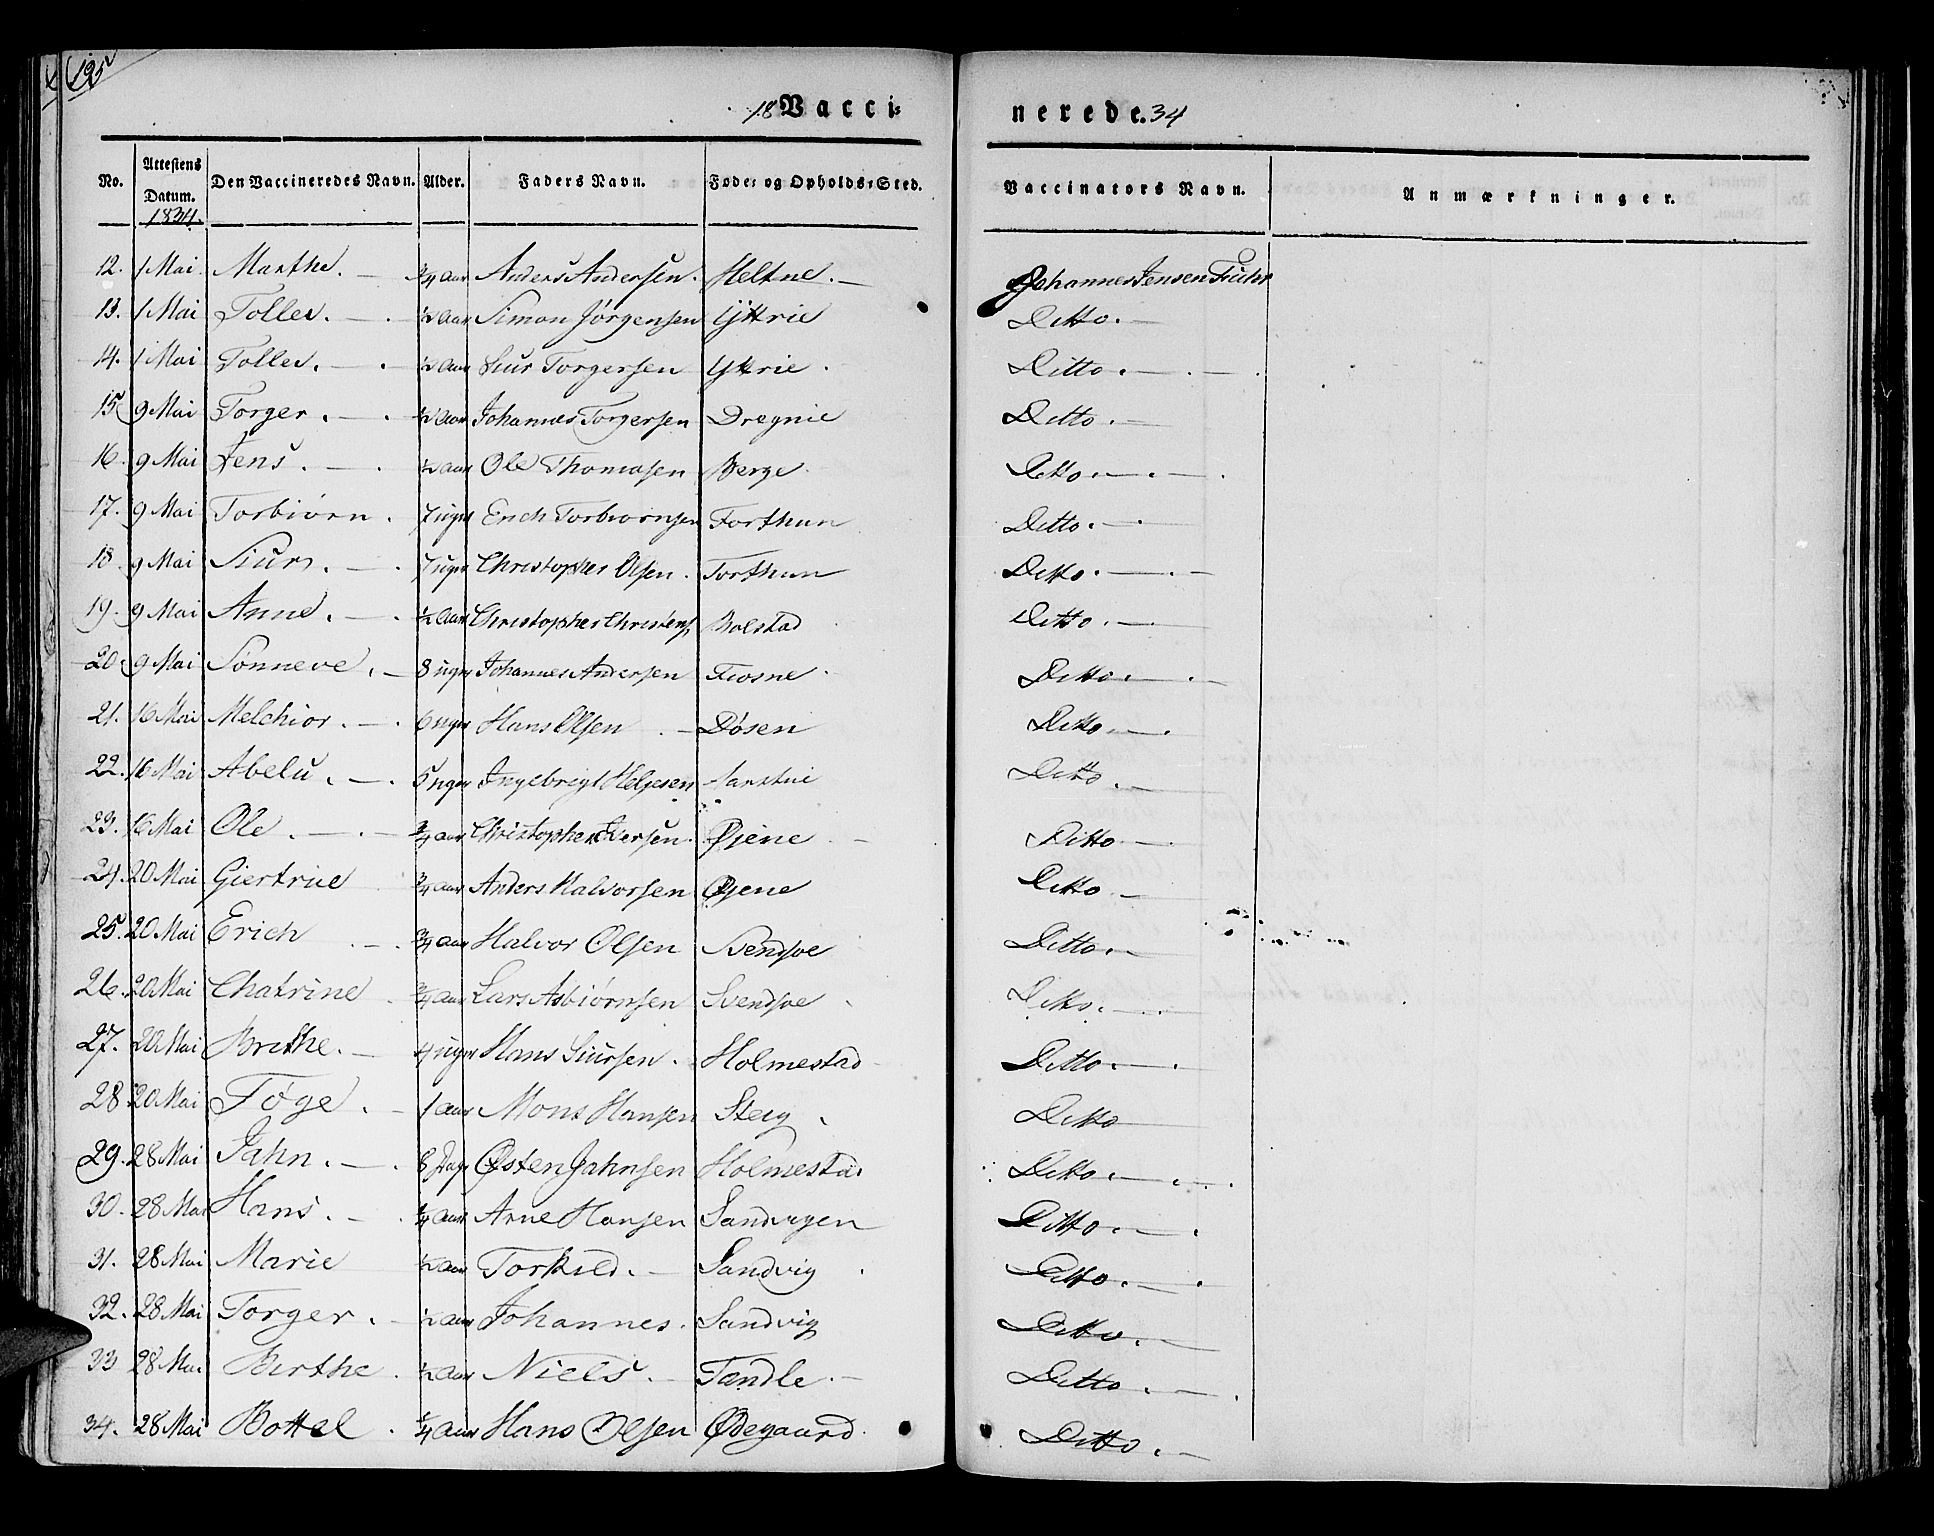 195
18 Vacci= nerede. 34
No. Attestens Datum. Den Vaccineredes Navn. Alder. Faders Navn. Føde= og Opholds=Sted. Vaccinators Navn. Anmærkninger.
1834.
12. 1 Mai Marthe. 3/4 aar Anders Andersen. Heltne. Johannes Jensen
13. 1 Mai Tollev. 1/2 aar Simon Jørgensen Yttrie Ditto.
14. 1 Mai Tollev. 1/2 aar Siur Torgersen Yttrie. Ditto.
15 9 Mai Torger. 1/2 aar Johannes Torgersen Dregnie Ditto.
16. 9 Mai Jens. 1/2 aar Ole Thomasen Berge. Ditto.
17. 9 Mai Torbiørn. 7 uger Erich Torbiørnsen Forthun Ditto.
18. 9 Mai Siur. 7 uger Christopher Olsen. Forthun Ditto.
19. 9 Mai Anne. 1/2 aar Christopher Christens Bolstad Ditto.
20. 9 Mai Sønneve. 8 uger Johannes Andersen Fiosne Ditto.
21. 16 Mai Melchior. 6 uger Hans Olsen Døsen Ditto.
22. 16 Mai Abelu. 5 uger Ingebrigt Helgesen Ditto.
23. 16 Mai Ole. 3/4 aar Christopher Iversen. Øjene Ditto.
24. 20 Mai Giertrue 3/4 aar Anders Halvorsen Øjene Ditto.
25. 20 Mai Erich 3/4 aar Halvor Olsen Svendsøe Ditto.
26. 20 Mai Chatrine 3/4 aar Lars Asbiørnsen Svendsøe Ditto.
27. 20 Mai Brithe. 4 uger Hans Siursen. Holmestad Ditto.
28 20 Mai Tøge. 1 aar Mons Hansen Steig Ditto
29. 28 Mai Jahn. 8 Dage Østen Jahnsen Holmestad Ditto.
30. 28 Mai Hans. 1/4 aar Arne Hansen Sandvigen Ditto.
31. 28 Mai Marie 1/2 aar Torkild. Sandvig Ditto.
32. 28 Mai Torger. 1/2 aar Johannes. Sandvig Ditto.
33 28 Mai Birthe. 1/2 aar Niels. Tandle. Ditto.
34. 28 Mai Bottel. 1/4 aar Hans Olsen Ødegaard. Ditto.